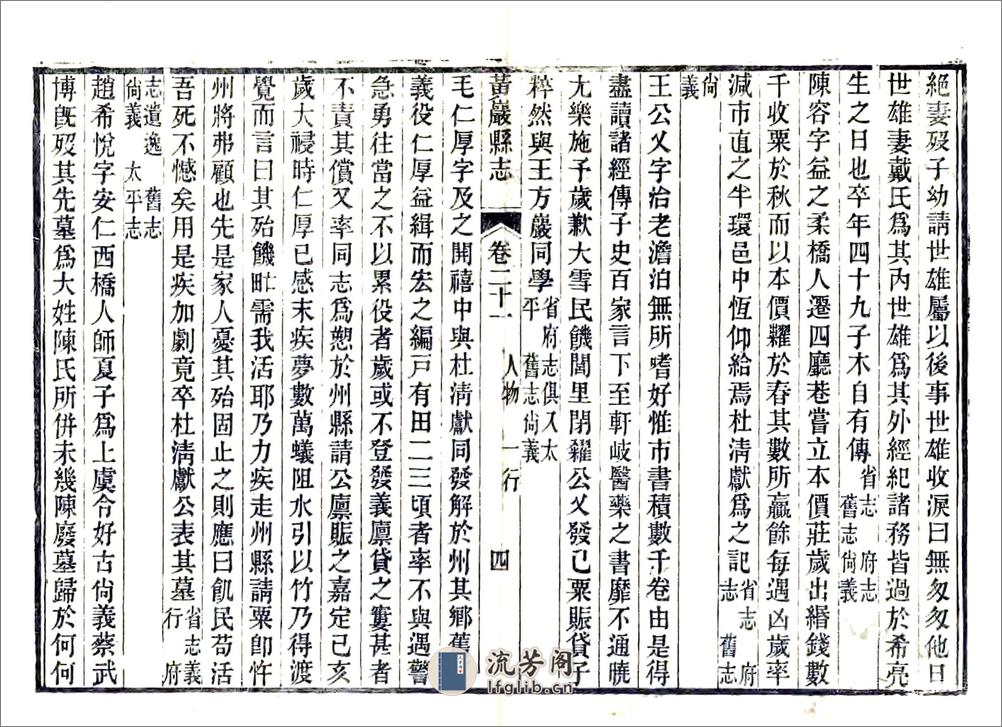 絕妻歿子幼請世雄屬以後事世雄收淚曰無匆匆他日
世雄妻戴氏爲其內世雄爲其外經紀諸務皆過於希亮
生之日也卒年四十九子木自有傳省志 府志 舊志尙義
陳容字益之柔橋人遷四廳巷嘗立本價莊歲出緡錢數
千收粟於秋而以本價糶於春其數所贏餘每遇凶歲率
減市直之半環邑中恆仰給焉杜淸獻爲之記省志 府志 舊志
尙義
王公父字治老澹泊無所嗜好惟市書積數千卷由是得
盡讀諸經傳子史百家言下至軒岐醫藥之書靡不通曉
尤樂施予歲歉大雪民饑閭里閉糴公父發己粟賑貸子
粹然與王方巖同學省府志俱入太平 舊志尙義
黃巖縣志 卷二十一 人物 一行 四
毛仁厚字及之開禧中與杜淸獻同發解於州其鄕舊
義役仁厚益緝而宏之編戸有田二三頃者率不與遇警
急勇往當之不以累役者歲或不登發義廩貸之窶甚者
不責其償又率同志爲懇於州縣請公廩賑之嘉定己亥
歲大祲時仁厚已感末疾夢數萬蟻阻水引以竹乃得渡
覺而言曰其殆饑甿需我活耶乃力疾走州縣請粟卽忤
州將弗顧也先是家人憂其殆固止之則應曰飢民苟活
吾死不憾矣用是疾加劇竟卒杜淸獻公表其墓省志義行 府
志遺逸 舊志尙義 太平志
趙希悅字安仁西橋人師夏子爲上虞令好古尙義蔡武
博旣歿其先墓爲大姓陳氏所併未幾陳廢墓歸於何何
流芳阁
lfglib.cn